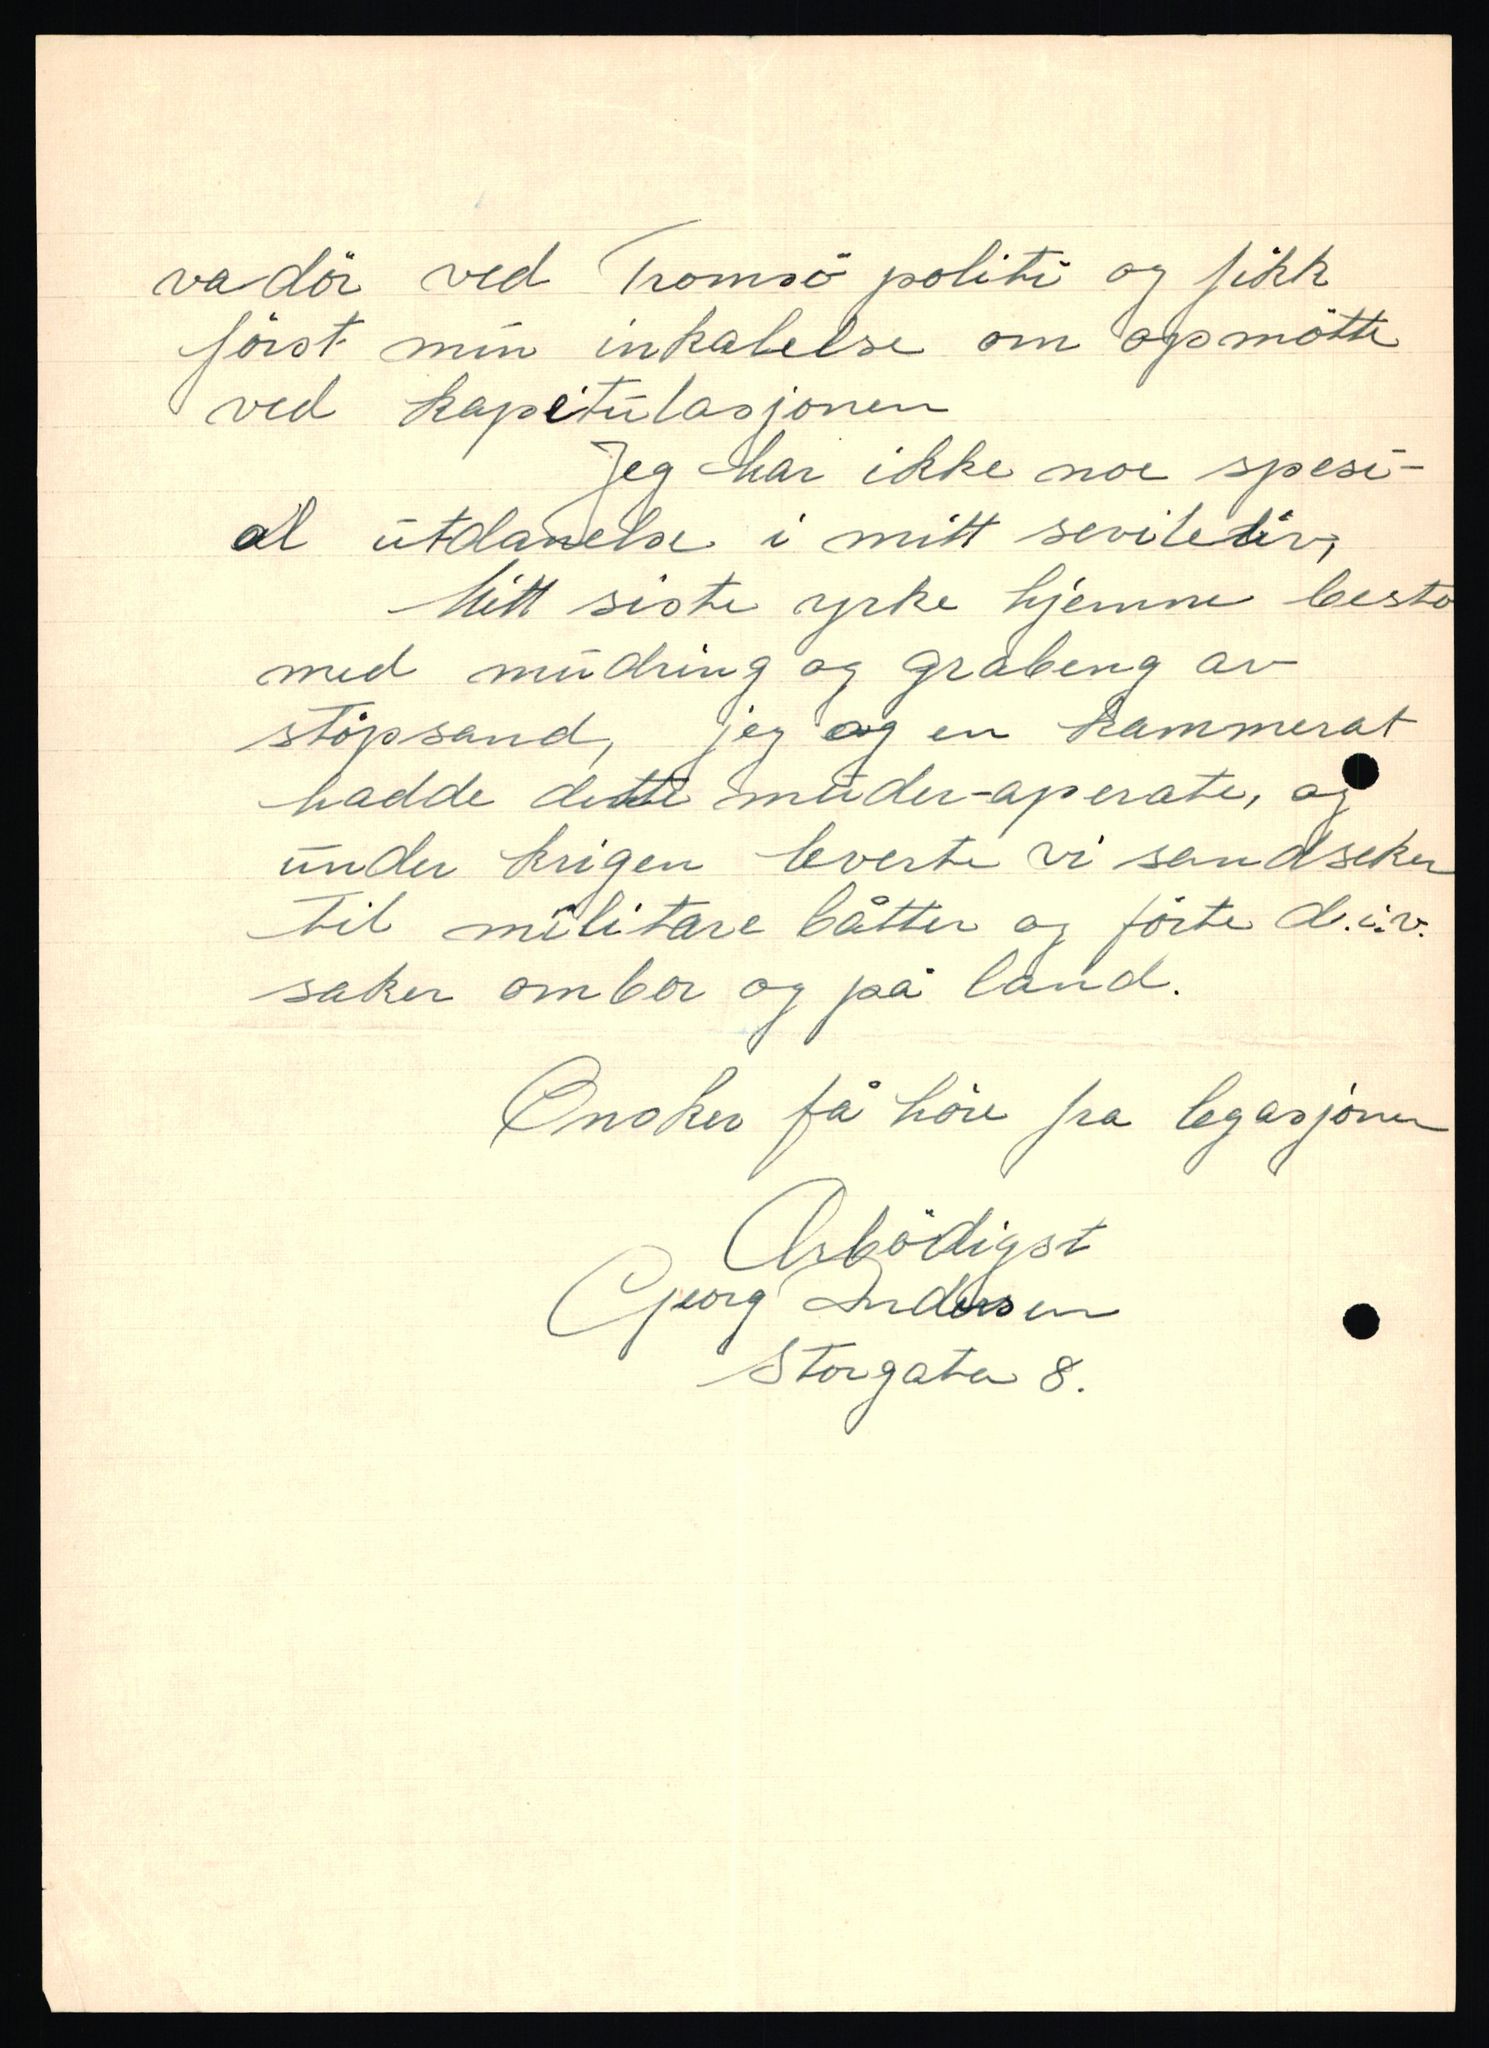 vadör ved Tromsö politi og fikk
först min inkalelse om opmötte
ved kapitulasjonen
Jeg har ikke noe spesi-
al utdanelse i mitt sevile liv,
Mitt siste yrke hjemme besto
med mudring og grabeng av
stöpsand, jeg og en kammerat
hadde dette muder-aperate, og
under krigen leverte vi sandseker
til militare båtter og förte d.i.v.
saker ombor og på land.
Ønsker få höre fra legasjonen
Arbödigst
Georg Andersen
Storgata 8.